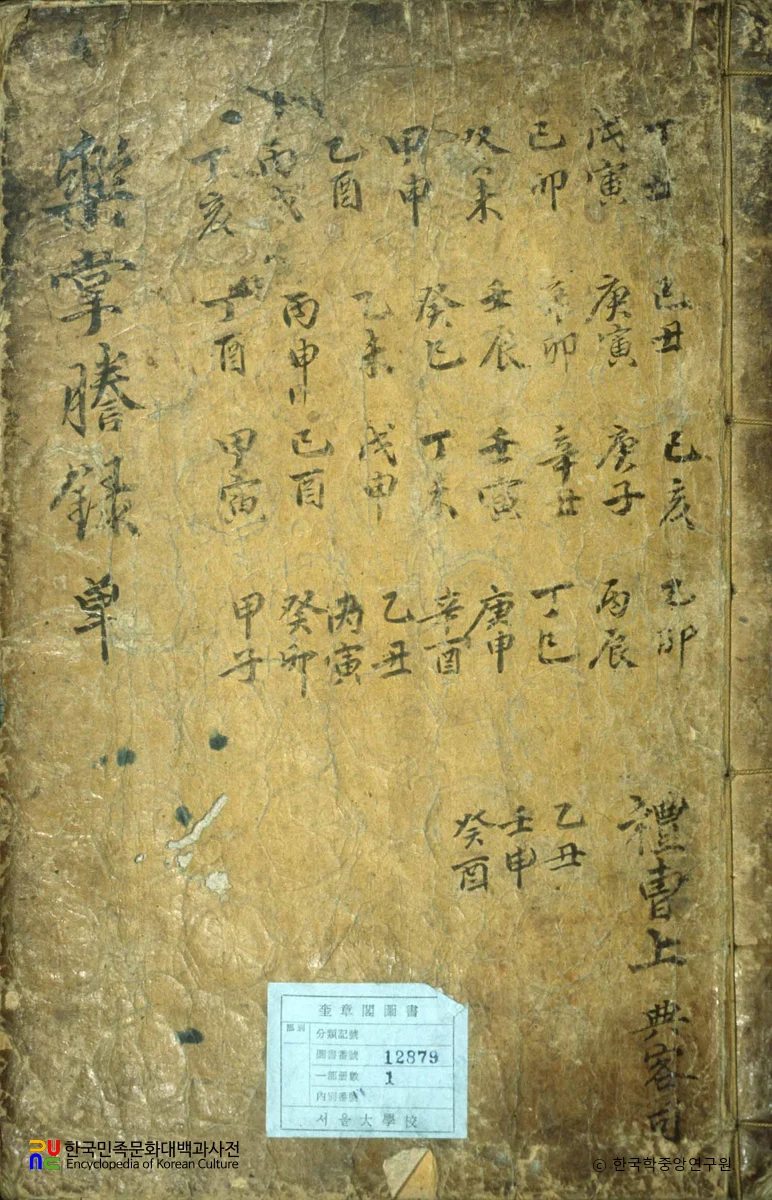 樂掌謄録 单
丁丑 戊寅 己卯 癸未 甲申 乙酉 丙戌 丁亥
己丑 庚寅 辛卯 壬辰 癸巳 乙未 丙申 丁酉
己亥 庚子 辛丑 壬寅 丁未 戊申 己酉 甲寅
乙卯 丙辰 丁巳 庚申 辛酉 乙丑 丙寅 癸卯 甲子
乙丑 壬申 癸酉
禮曹上 典客司
奎章閣圖書
部別
分類記號
圖書番號 12879
一部冊數 1
內別番號
서울大學校
한국민족문화대백과사전
Encyclopedia of Korean Culture
© 한국학중앙연구원